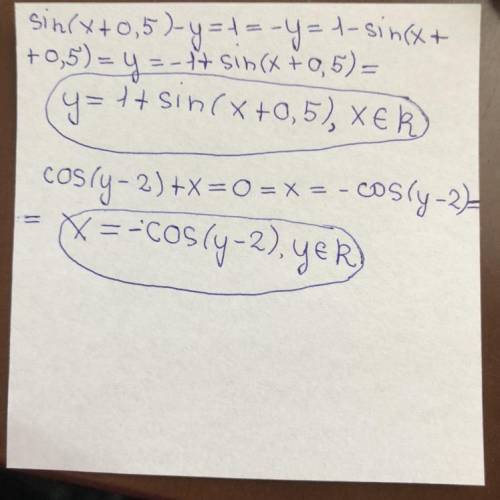 sin(x+0,5)-y=1=-y=1-sin(x+
+0,5)=y=-1+sin(x+0,5)=
y=1+sin(x+0,5), x∈R
cos(y-2)+x=0=x=-cos(y-2)=
= x=-cos(y-2), y∈R